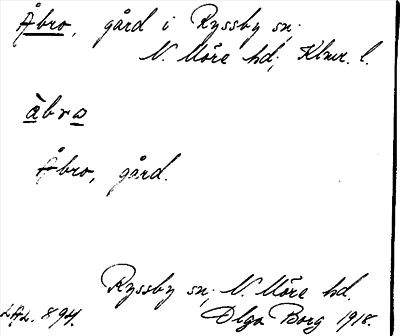 Åbro, gård i Ryssby sn;
N. Möre hd; Klmr. l.
àbro
Åbro, gård.
Ryssby sn; N. Möre hd.
LAL. 894. Olga Borg 1918.